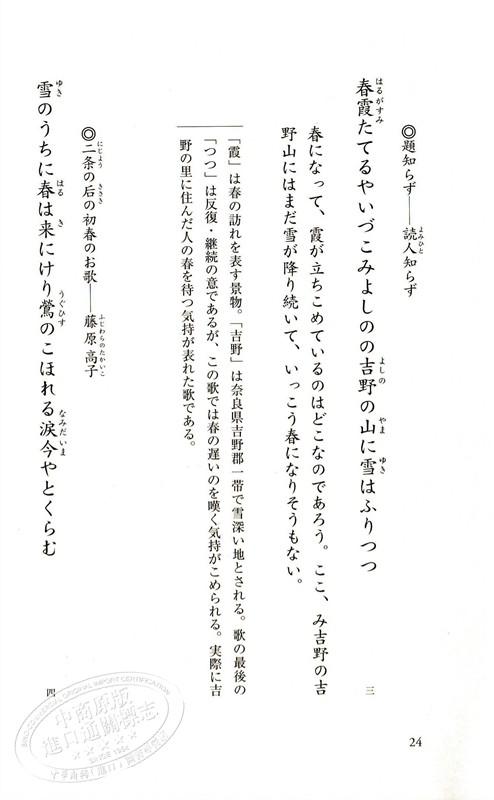 ◎題知らず――読人知らず
春霞たてるやいづこみよしのの吉野の山に雪はふりつつ
三
春になって、霞が立ちこめているのはどこなのであろう。ここ、み吉野の吉
野山にはまだ雪が降り続いて、いっこう春になりそうもない。
「霞」は春の訪れを表す景物。「吉野」は奈良県吉野郡一帯で雪深い地とされる。歌の最後の
「つつ」は反復・継続の意であるが、この歌では春の遅いのを嘆く気持がこめられる。実際に吉
野の里に住んだ人の春を待つ気持が表れた歌である。
◎二条の后の初春のお歌――藤原高子
雪のうちに春は来にけり鶯のこほれる涙今やとくらむ
四
24
中商原版
進口通關標志